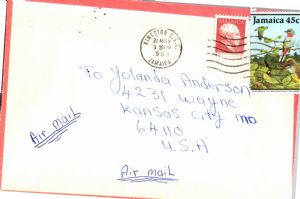 KINGSTON
21 NOV
JAMAICA
Jamaica 45c
To Yolanda Anderson
4231 Wayne
Kansas City mo
64110
U.S.A
Air mail
Air mail